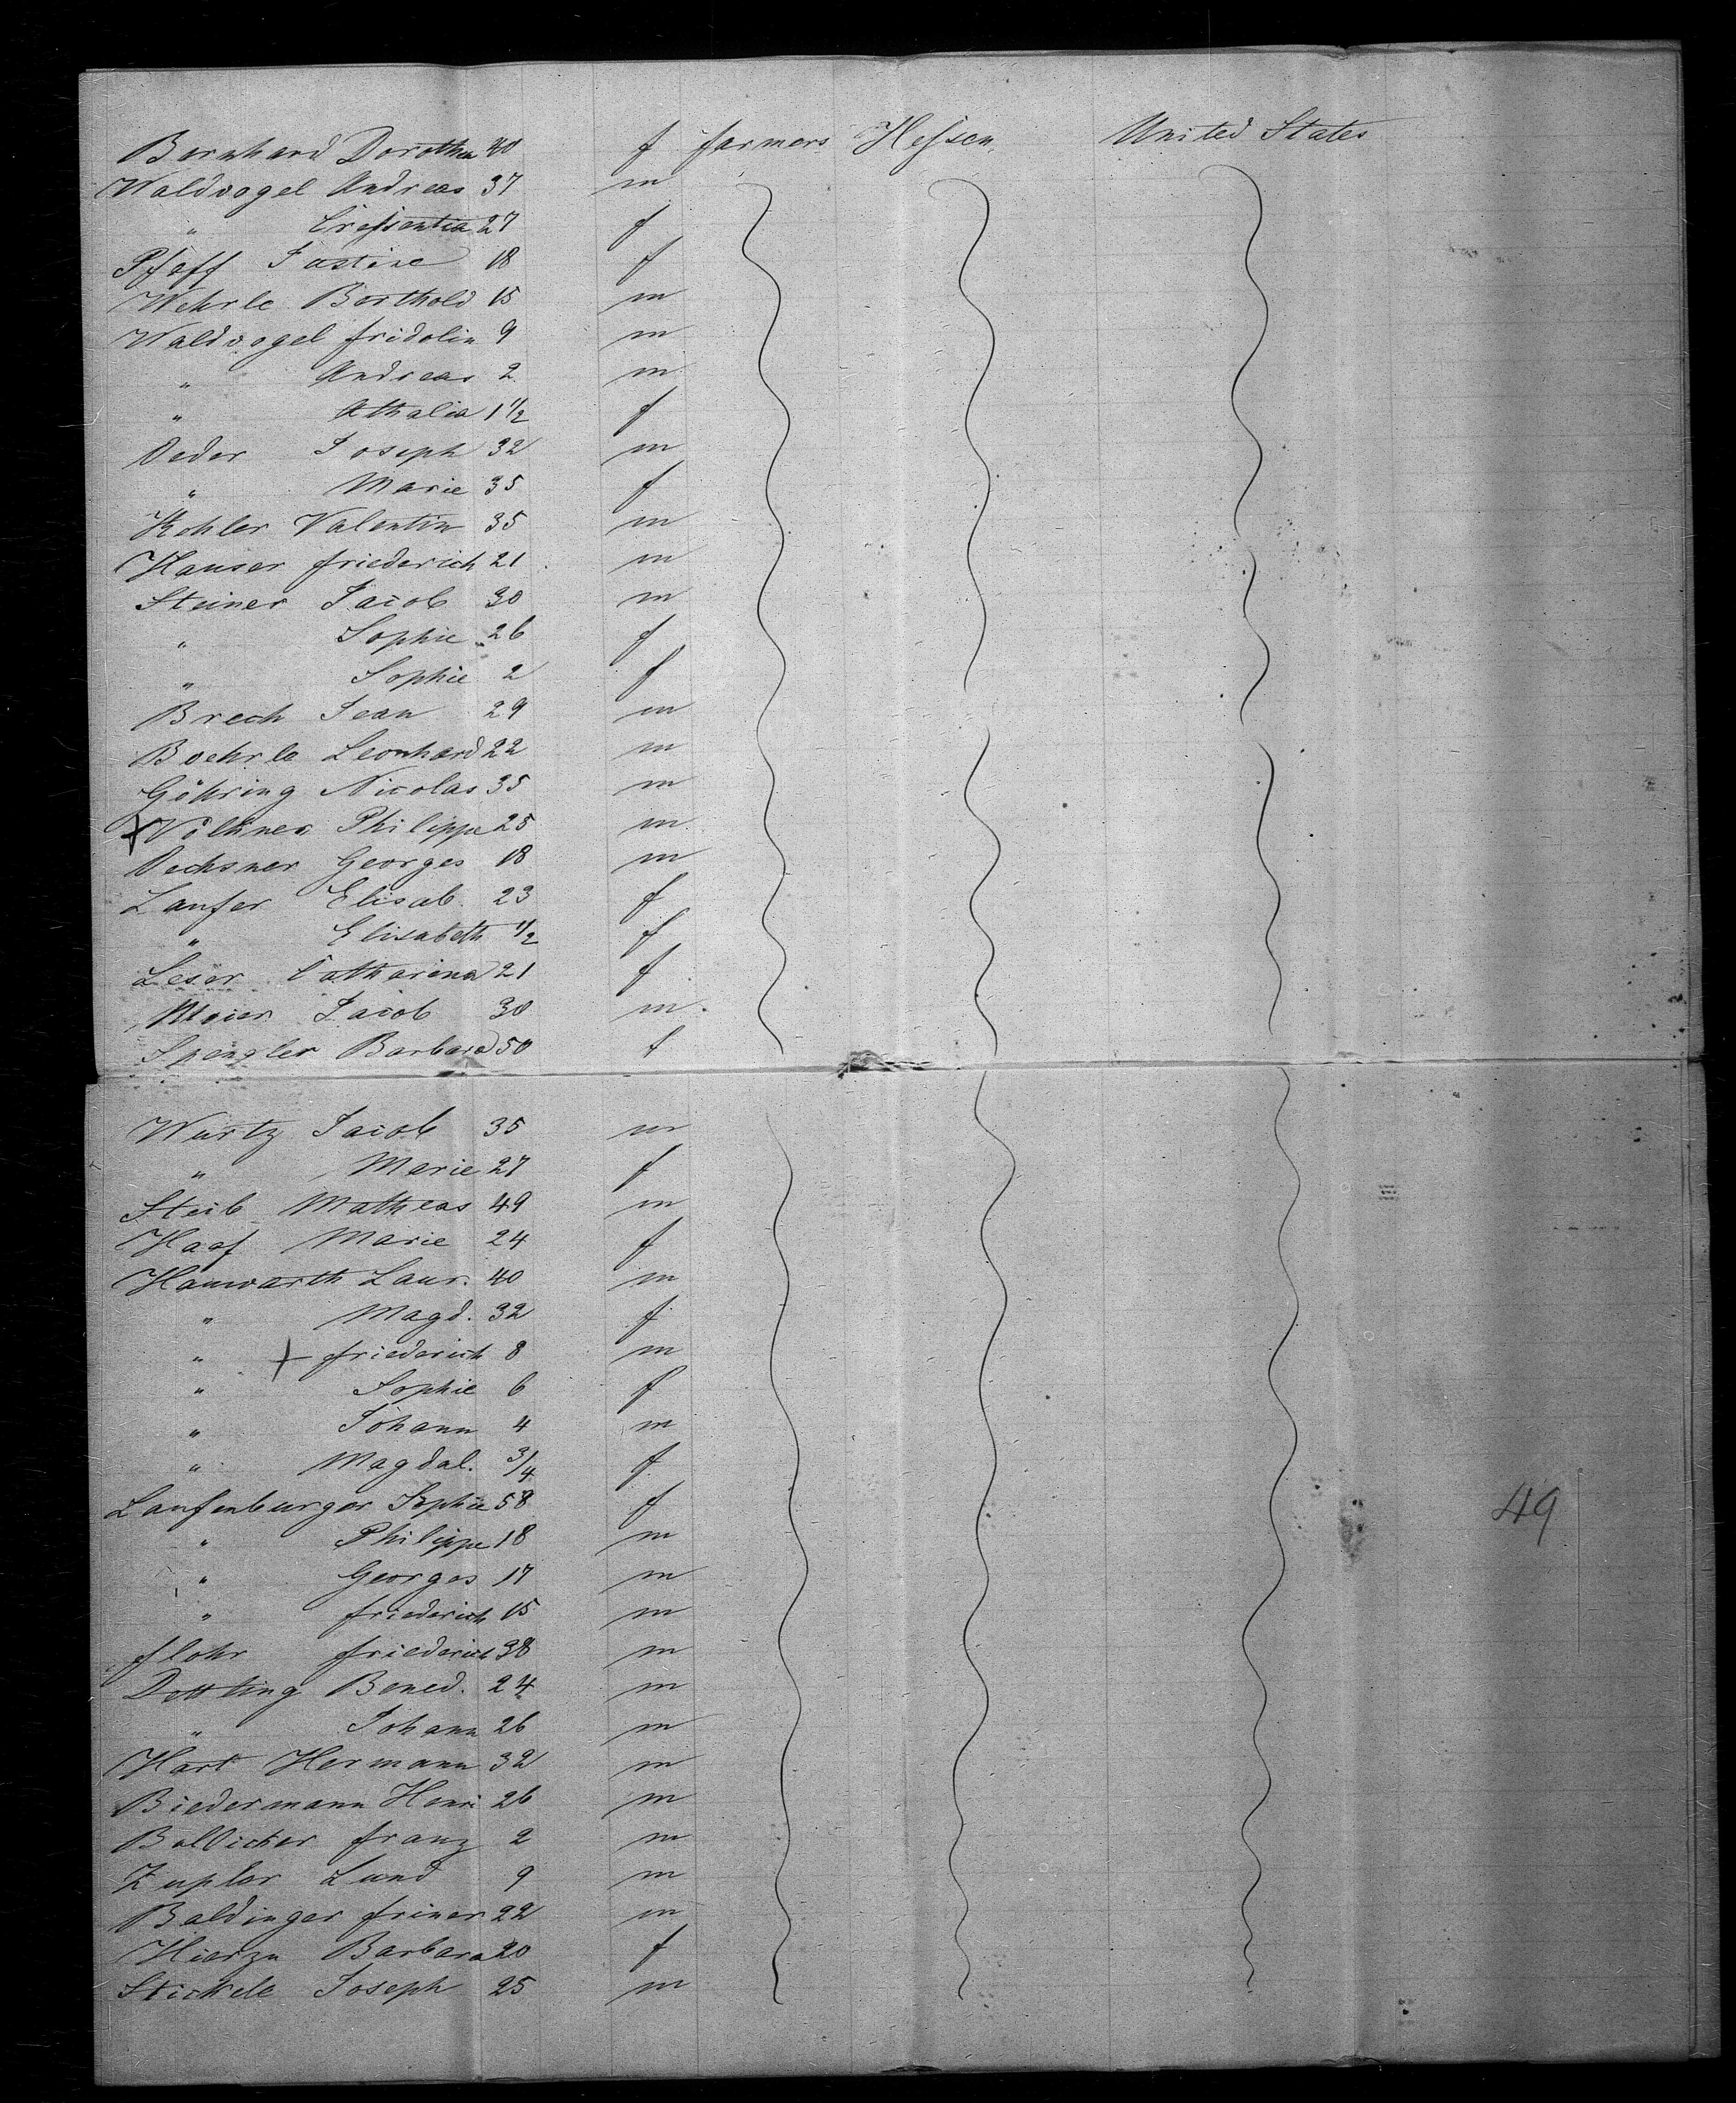 Bernhard Dorothea 40 f farmers Hessen United States
Waldvogel Andreas 37 m
" Cressentia 27 f
Pfaff Justine 18 f
Wehrle Berthold 15 m
Waldvogel fridolin 9 m
" Andreas 2 m
" Athalia 1 1/2 f
Oeder Joseph 32 m
" Marie 35 f
Kohler Valentin 35 m
Hauser friederich 21 m
Steiner Jacob 30 m
" Sophie 26 f
" Sophie 2 f
Brech Jean 29 m
Boehrle Leonhard 22 m
Göhring Nicolas 35 m
x Philippe 25 m
Oechsner Georges 18 m
Laufer Elisab. 23 f
" Elisabeth 1/2 f
Leser Catharina 21 f
Meier Jacob 30 m
Spengler Barbara 50 f
Wurtz Jacob 35 m
" Marie 27 f
Steib Matheas 49 m
Haaf Marie 24 f
Hauwarth Laur. 40 m
" Magd. 32 f
" x friederich 8 m
" Sophie 6 f
" Johann 4 m
" Magdal. 3/4 f
Laufenburger Sophie 58 f
" Philippe 18 m
" Georges 17 m
" friederich 15 m
flohr friederich 38 m
Dottling Bened. 24 m
" Johann 26 m
Hart Hermann 32 m
Biedermann Henri 26 m
Bollicker franz 2 m
Zupler 9 m
Baldinger 22 m
Barbara 20 f
Stickele Joseph 25 m
49